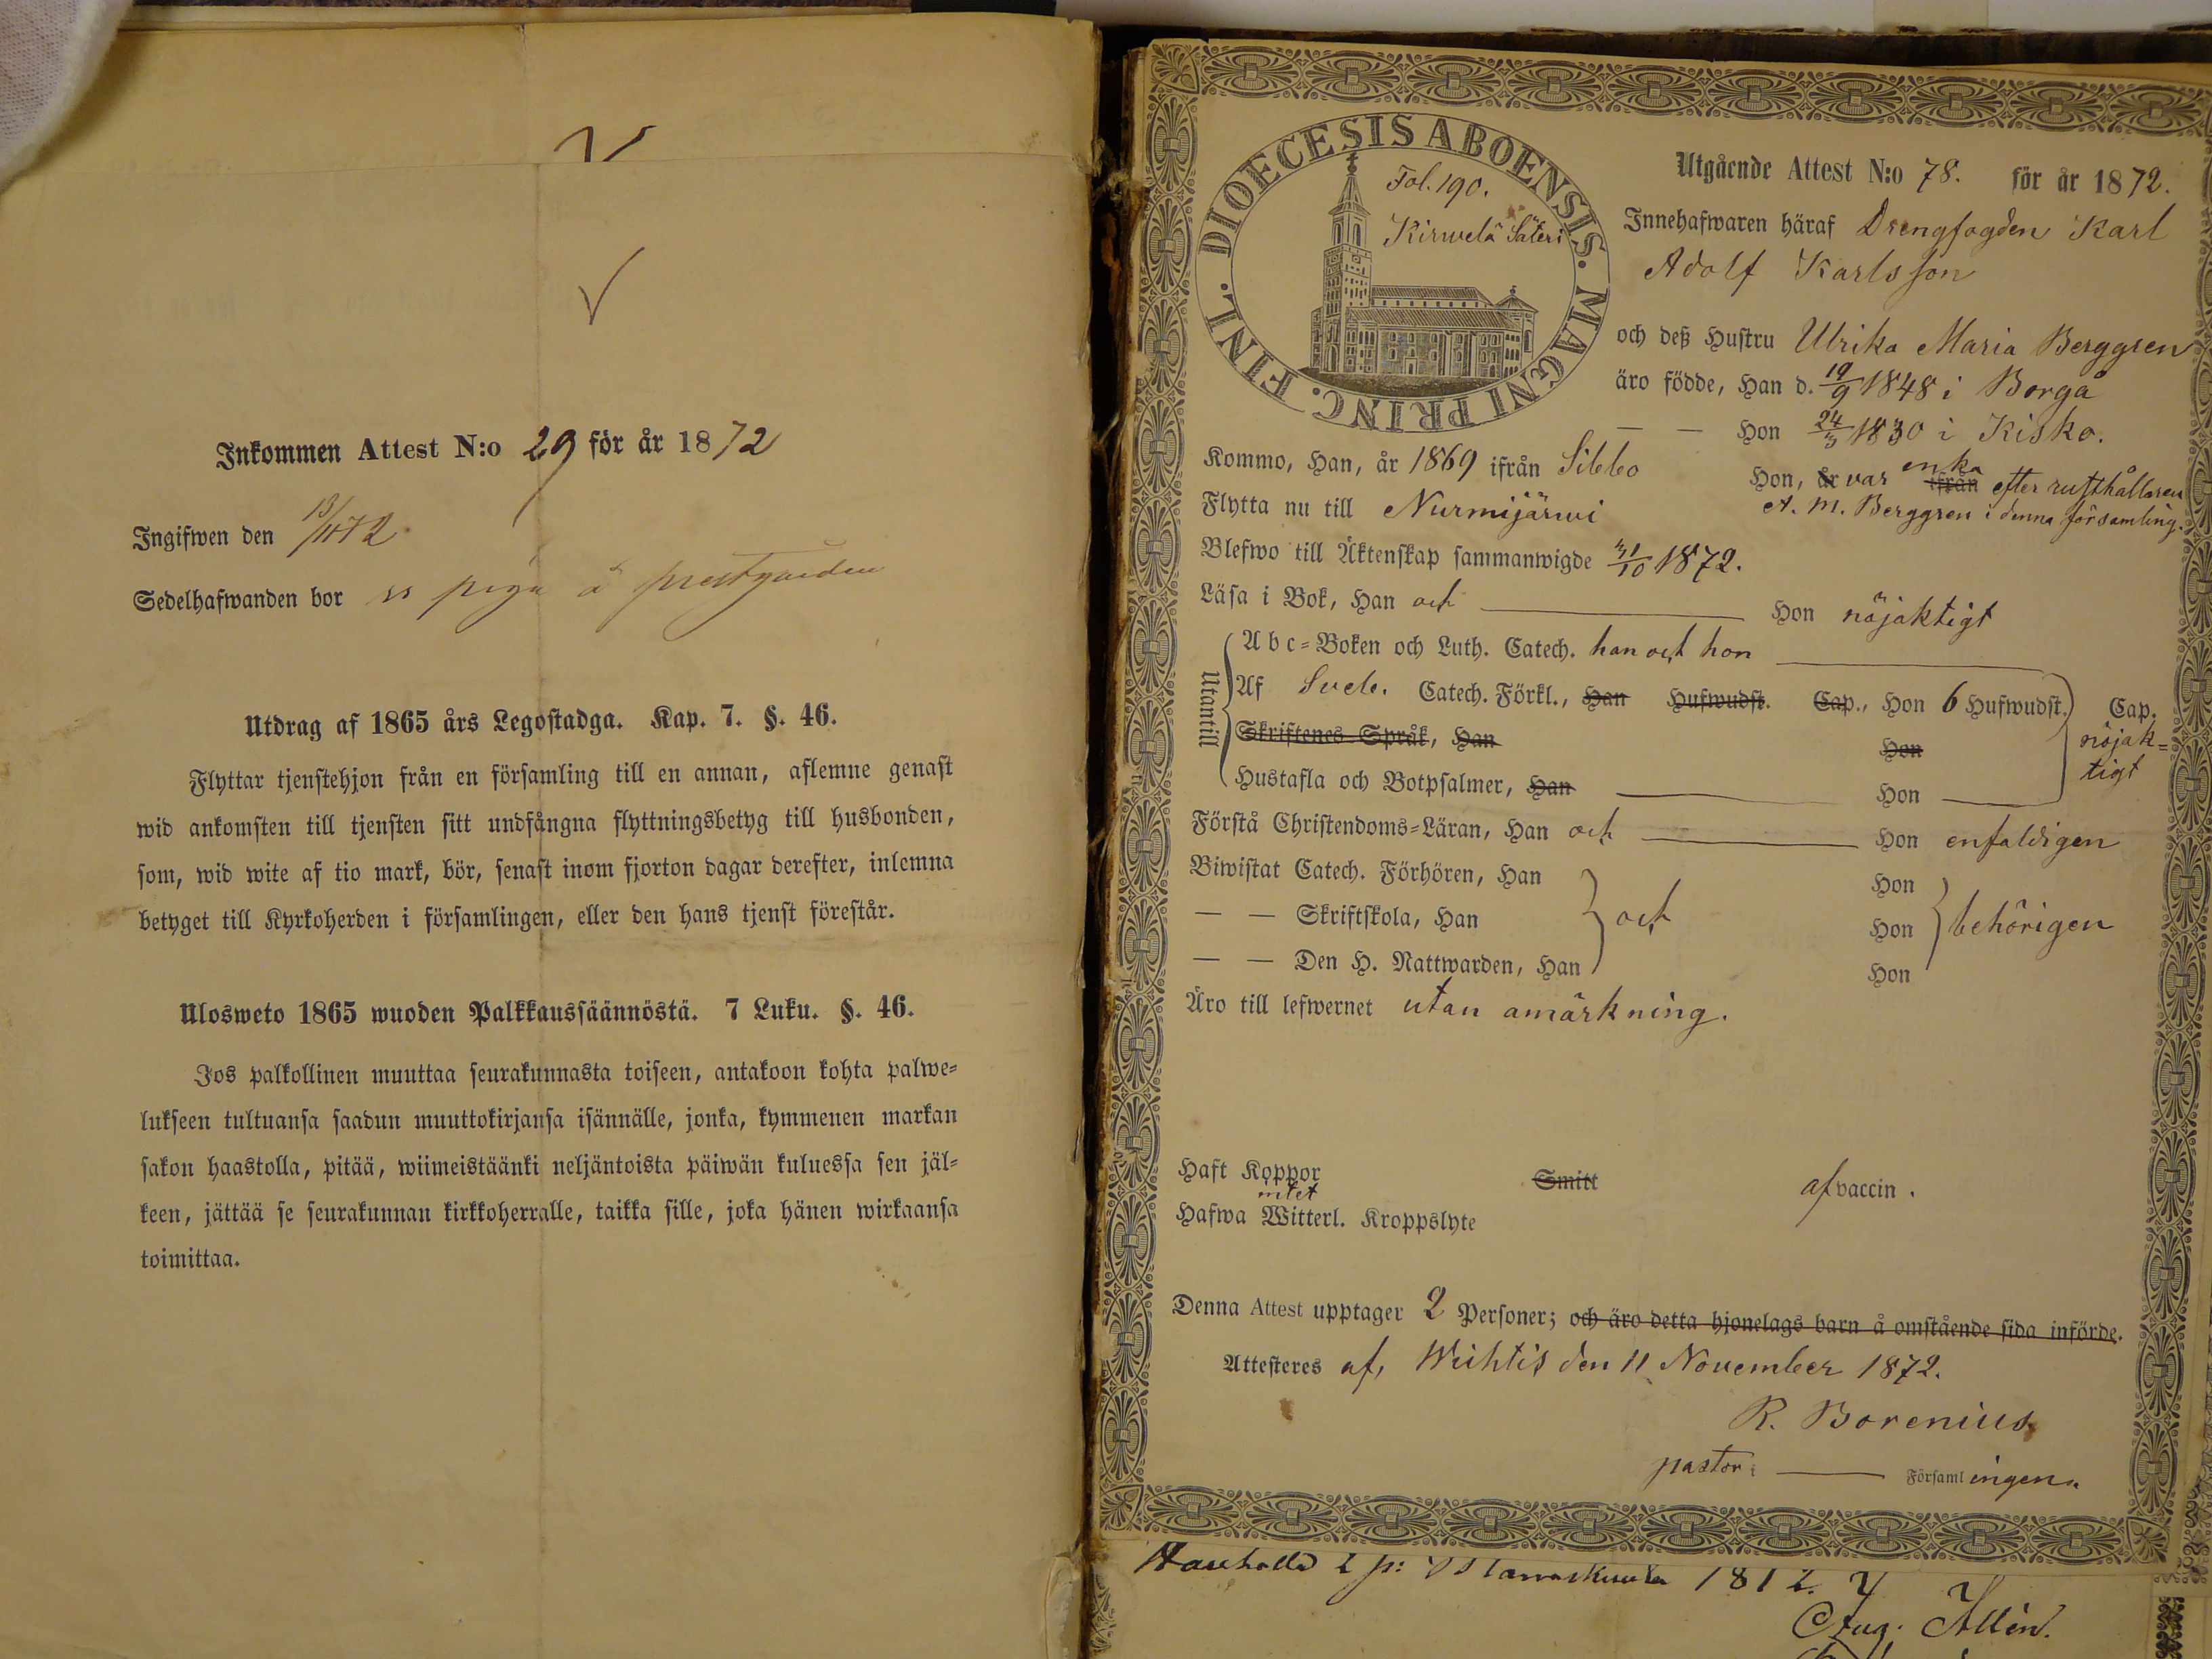 Inkommen Attest N:o 29 för år 1872
Ingifwen den 13/11 72
Sedelhafwanden bor ss piga å prestgården
Utdrag af 1865 års Legostadga. Kap. 7. §. 46.
Flyttar tjenstehjon från en församling till en annan, aflemne genast
wid ankomsten till tjensten sitt undfångna flyttningsbetyg till husbonden,
som, wid wite af tio mark, bör, senast inom fjorton dagar derefter, inlemna
betyget till Kyrkoherden i församlingen, eller den hans tjenst förestår.
Ulosweto 1865 wuoden Palkkaussäännöstä. 7 Luku. §. 46.
Jos palkollinen muuttaa seurakunnasta toiseen, antakoon kohta palwe-
lukseen tultuansa saadun muuttokirjansa isännälle, jonka, kymmenen markan
sakon haastolla, pitää, wiimeistäänki neljäntoista päiwän kuluessa sen jäl-
keen, jättää se seurakunnan kirkkoherralle, taikka sille, joka hänen wirkaansa
toimittaa.
DIOECESIS ABOENSIS. MAGNI PRINC. FINL.
Fol. 190.
Kirwelä Säteri
Utgående Attest N:o 78. för år 1872.
Innehafwaren häraf Drengfogden Karl
Adolf Karlsson
och deß Hustru Ulrika Maria Berggren
äro födde, Han d. 19/9 1848 i Borgå
— — Hon 24/3 1830 i Kisko.
Kommo, Han, år 1869 ifrån Sibbo Hon, år var enka ifrån efter rusthållaren
A. M. Berggren i denna församling.
Flytta nu till Nurmijärwi
Blefwo till Äktenskap sammanwigde 31/10 1872.
Läsa i Bok, Han och Hon nöjaktigt
Utantill
Abc-Boken och Luth. Catech. han och hon
Af Sveb. Catech. Förkl., Han Hufwudst. Cap., Hon 6 Hufwudst. Cap.
Skriftenes Språk, Han Hon
nöjak-
tigt
Hustafla och Botpsalmer, Han Hon
Förstå Christendoms-Läran, Han och Hon enfaldigen
Biwistat Catech. Förhören, Han Hon
— — Skriftskola, Han och Hon behörigen
— — Den H. Nattwarden, Han Hon
Äro till lefwernet utan amärkning.
Haft Koppor Smitt af vaccin.
Hafwa intet Witterl. Kroppslyte
Denna Attest upptager 2 Personer; och äro detta hjonelags barn å omstående sida införde.
Attesteres af, Wichtis den 11 November 1872.
R. Borenius
pastor i Församlingen.
1872
Aug. Allén.